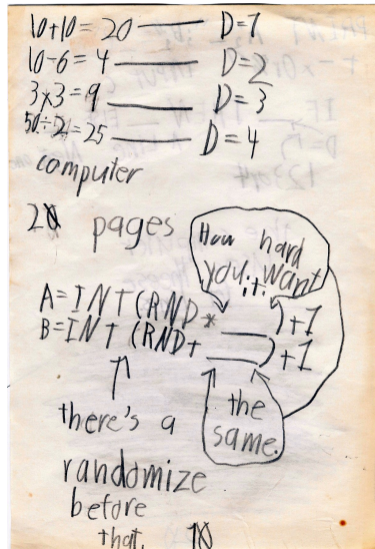 10+10=20 D=1
10-6=4 D=2
3x3=9 D=3
50÷2=25 D=4
computer
20 pages
How hard
you want
it.
A=INT(RND* )+1
B=INT(RND+ )+1
there's a
the
same.
randomize
before
that. 10